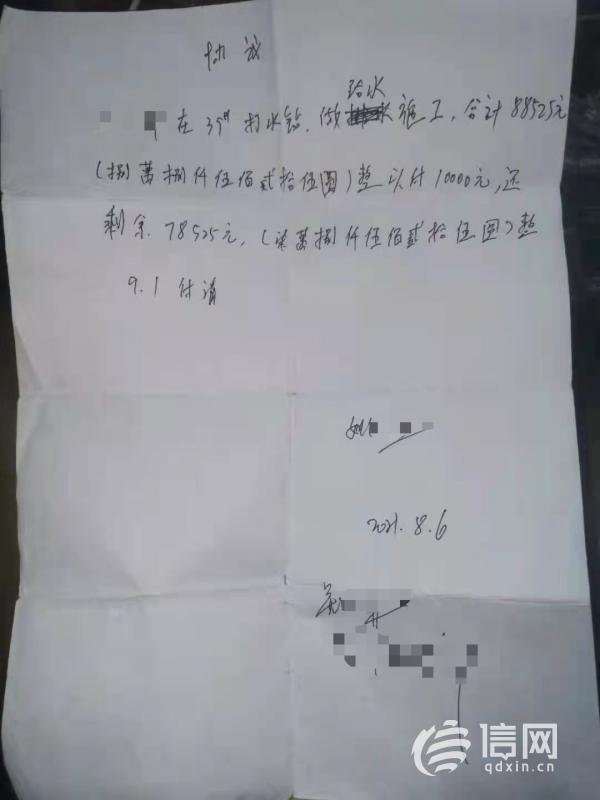 协议
在39# 打水钻、做给水施工，合计88525元
（捌萬捌仟伍佰贰拾伍圆）整 以付10000元，还
剩余78525元，（柒萬捌仟伍佰贰拾伍圆）整
9.1 付清
姚
2021.8.6
信网
qdxin.cn